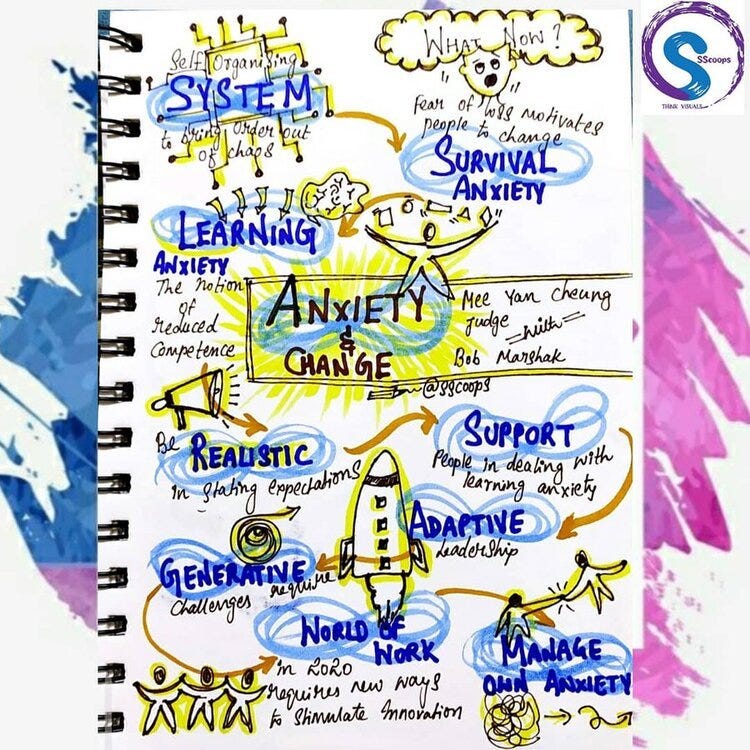 SScoops
THINK VISUALS
Self Organising
SYSTEM
to bring Order out
of chaos
WHAT NOW?
Fear of loss motivates
people to change
SURVIVAL
ANXIETY
LEARNING
ANXIETY
The notion
of
reduced
Competence
ANXIETY
&
CHANGE
Mee Yan Cheung
Judge
with
Bob Marshak
@SScoops
Be
REALISTIC
in stating expectations
SUPPORT
People in dealing with
learning anxiety
ADAPTIVE
Leadership
GENERATIVE
Challenges require
WORLD OF
WORK
in 2020
requires new ways
to stimulate Innovation
MANAGE
OWN ANXIETY